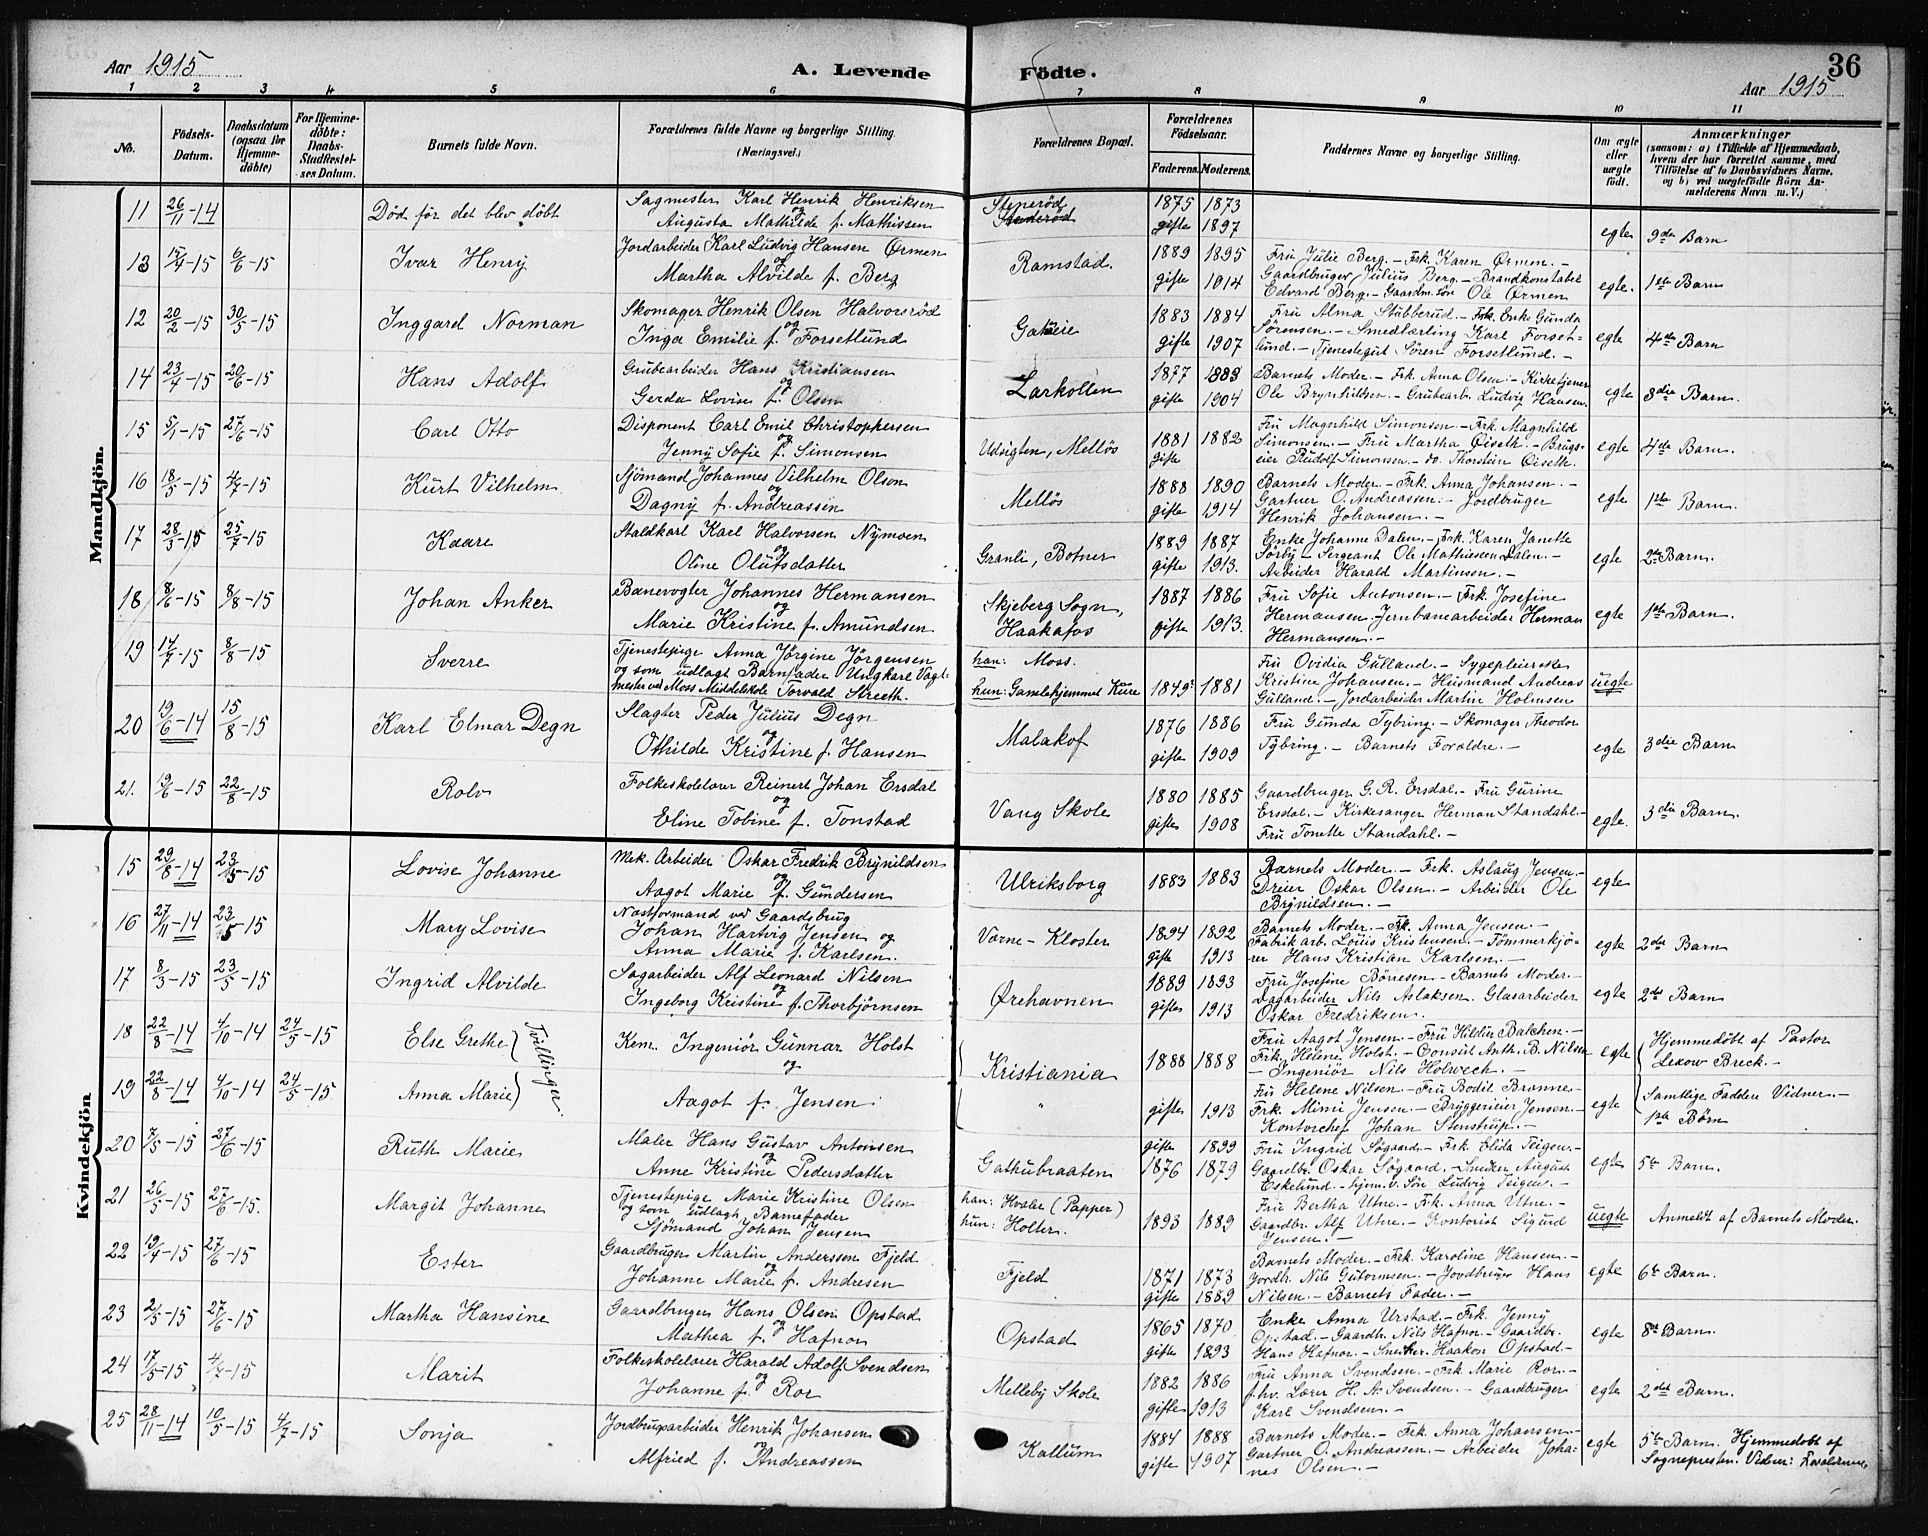 Aar 1915
A. Levende
Födte.
36
Aar 1915
1 2 3 4 5 6 7 8 9 10 11
No.
Födsels-
Datum.
Daabsdatum
(ogsaa for
Hjemme-
döbte)
For Hjemme-
döbte:
Daabs-
Stadfæstel-
ses Datum.
Barnets fulde Navn.
Forældrenes fulde Navne og borgerlige Stilling.
(Næringsvei.)
Forældrenes Bopæl.
Forældrenes
Födselsaar.
Faderens. Moderens.
Faddernes Navne og borgerlige Stilling.
Om ægte
eller
uægte
födt.
Anmærkninger
(saasom: a) i Tilfælde af Hjemmedaab,
hvem der har forrettet samme, med
Tilföielse af to Daabsvidners Navne.
og b) ved uægtefödte Börn An-
melderens Navn m. V.)
Mandkjön.
11 26/11-14 Död før det blev døbt
Sagmester Karl Henrik Henriksen
og
Augusta Mathilde f. Mathissen
Stenerød
1875 1873
gifte 1897
egte 9de Barn
13 15/4-15 6/6-15 Ivar Henry
Jordarbeider Karl Ludvig Hansen Ørmen
og
Martha Alvilde f. Berg
Ramstad.
1889 1895
gifte 1914
Fru Julie Berg. - Frk. Karen Ørmen. -
Gaardbruger Julius Berg. - Brandkonstabel
Edvard Berg. - Gaardm.søn Ole Ørmen
egte. 1ste Barn
12 20/2-15 30/5-15 Inggard Norman
Skomager Henrik Olsen Halvorsrød
og
Inga Emilie f. Forsetlund
1883 1884
gifte 1907
Fru Alma Stubberud. - Enke Gunda
Sørensen. - Smedlærling Karl Forset-
lund. - Tjenestegut Søren Forsetlund. -
egte 4de Barn
14 23/4-15 20/6-15 Hans Adolf
Grubearbeider Hans Kristiansen
og
Gerda Lovise f. Olsen
Larkollen
1877 1883
gifte 1904
Barnets Moder. - Frk. Anna Olsen. - Kirketjener
Ole Brynildsen. - Grubearb. Ludvig Hansen.
egte 3die Barn.
15 5/1-15 27/6-15 Carl Otto
Disponent Carl Emil Christophersen
og
Jenny Sofie f. Simonsen
Udsigten, Melløs
1881 1882
gifte
Fru Magnhild Simonsen - Frk Magnhild
Simonsen. - Fru Martha Øiseth. - Brugs-
eier Rudolf Simonsen. - do. Thorstein Øiseth.
egte 4de Barn.
16 18/5-15 4/7-15 Kurt Vilhelm
Sjömand Johannes Vilhelm Olson
og
Dagny f. Andreassen
Melløs
1888 1890
gifte 1914
Barnets Moder - Frk. Anna Johansen. -
Gartner O. Andreassen. - Jordbruger
Henrik Johansen. -
egte 1ste Barn.
17 28/3-15 25/7-15 Kaare
Staldkarl Karl Halvorsen Nymoen
og
Oline Olufsdatter
Granli, Botner
1889 1887
gifte 1913.
Enke Johanne Dalen. - Frk. Karen Janette
Sørby - Sergeant Ole Mathiesen Dalen. -
Arbeider Harald Martinsen. -
egte 2det Barn.
18 8/6-15 8/8-15 Johan Anker
Banevogter Johannes Hermansen
og
Marie Kristine f. Amundsen
Skjeberg Sogn,
Haakafos
1887 1886
gifte 1913.
Fru Sofie Antonsen. - Frk. Josefine
Hermansen - Jernbanearbeider Herman
Hermansen. -
egte 1ste Barn.
19 14/7-15 8/8-15 Sverre
Tjenestepige Anna Jörgine Jörgensen
og som udlagt Barnefader Ungkarl Vagt-
mester ved Moss Middelskole Torvald Streeth.
han: Moss.
hun: Gamlehjemmet Kure
1849? 1881
Fru Ovidia Gulland. - Sygepleierske
Kristine Johansen. - Husmand Andreas
Gulland. - Jordarbeider Martin Holmsen
uegte
20 19/6-14 15/8-15 Karl Elmar Degn
Slagter Peder Julius Degn
og
Othilde Kristine f. Hansen
Malakof
1876 1886
gifte 1909
Fru Gunda Tybring. - Skomager Theodor
Tybring. - Barnets Forældre. -
egte 3die Barn
21. 19/6-15 22/8-15 Rolv
Folkeskolelærer Reinert Johan Ersdal
og
Eline Tobine f. Tonstad
Vang Skole
1880 1885
gifte 1908
Gaardbruger G. R. Ersdal. - Fru Gurine
Ersdal. - Kirkesanger Herman Standahl. -
Fru Tonette Standahl. -
egte. 3die Barn.
Kvindekjön
15 29/8-14 23/5-15 Lovise Johanne
Mek. Arbeider Oskar Fredrik Brynildsen
og
Aagot Marie f. Gundersen
Ulriksborg
1883 1883
Barnets Moder. - Frk. Aslaug Jensen. -
Dreier Oskar Olsen. - Arbeider Ole
Brynildsen. -
egte
16 27/11-14 23/5-15 Mary Lovise
ved Gaardsbrug
Johan Hartvig Jensen og
Anna Marie f. Karlsen.
Værne-Kloster
1894 1892
gifte 1913
Barnets Moder. - Frk. Anna Jensen. -
Fabrikarb. Louis Kristensen. - Tömmerkjö-
rer Hans Kristian Karlsen. -
egte 2det Barn
17 8/3-15 23/5-15 Ingrid Alvilde
Sagarbeider Alf Leonard Nilsen
og
Ingeborg Kristine f. Thorbjørnsen
Ørehavnen
1889 1893
gifte 1913
Fru Josefine Børresen - Barnets Moder. -
Dagarbeider Nils Aslaksen. Glasarbeider
Oskar Fredriksen.
egte 2det Barn
18 22/8-14 4/10-14 24/5-15 Else Grethe
Tvillinger.
Kem. Ingeniör Gunnar Holst
og
Kristiania
1888 1888
Fru Aagot Jensen - Fru Hildur Balchen. -
Frk. Helene Holst. - Consul Anth. B. Nilsen
- Ingeniör Nils Holwech. -
egte Hjemmedøbt af Pastor
Lexow Breck. -
19 22/8-14 4/10-14 24/5-15 Anna Marie
Aagot f. Jensen.
"
gifte 1913
Fru Helene Nilsen. - Fru Bodil Brønne. -
Frk. Mimi Jensen. - Bryggerieier Jensen. -
Kontorchef Johan Stenstrup. -
egte Samtlige Faddere Vidner. -
1ste Børn
20 7/5-15 27/6-15 Ruth Marie
Maler Hans Gustav Antonsen
og
Anne Kristine Pedersdatter
Gathubraaten
gifte 1899
1876 1879
Fru Ingrid Søgaard. - Frk. Elida Teigen. -
Gaardbr. Oskar Søgaard. - Snedker August
Eskelund. - hjem.v. Søn Ludvig Teigen. -
egte 5te Barn.
21 26/5-15 27/6-15. Margit Johanne
Tjenestepige Marie Kristine Olsen
og som udlagt Barnefader
Sjömand Johan Jensen
han: Hvaler (Papper)
hun: Holter.
1893 1889
Fru Bertha Utne. - Frk. Anna Utne. -
Gaardbr. Alf Utne. - Kontorist Sigurd
Jensen. -
uegte Anmeldt af Barnets Moder.
22 19/4-15 27/6-15 Ester
Gaardbruger Martin Anderssen Fjeld
og
Johanne Marie f. Andresen
Fjeld
1871 1873
gifte 1889
Barnets Moder. - Frk. Karoline Hansen. -
Jordb. Nils Gutormsen. - Jordbruger Hans
Nilsen. - Barnets Fader. -
egte 6te Barn.
23 2/5-15 27/6-15 Martha Hansine
Gaardbruger Hans Olsen Opstad
og
Mathea f. Hafnor
Opstad
1865 1870
gifte 1893
Enke Anna Urstad. - Frk. Jenny
Opstad. - Gaardb. Nils Hafnor. - Gaardbr.
Hans Hafnor. - Snedker Haakon Opstad. -
egte 8de Barn.
24 17/5-15 4/7-15 Marit
Folkeskolelærer Harald Adolf Svendsen
og
Johanne f. Ror
Melleby Skole
1882 1886
gifte 1913
Fru Anna Svendsen. - Frk Marie Ror. -
fhv. Lærer H. A. Svendsen. - Gaardbruger
Karl Svendsen. -
egte 2det Barn.
25 28/11-14 10/5-15 4/7-15 Sonja
Jordbrugarbeider Henrik Johansen
og
Alfried f. Andreassen
Kallum
1884 1888
gifte 1907
Barnets Moder. - Frk. Anna Johansen. -
Gartner O. Andreassen. - Arbeider Joha-
nes Olsen. -
egte 5te Barn. Hjemmedøbt af
Sognepresten. Vidner: Forældrene,